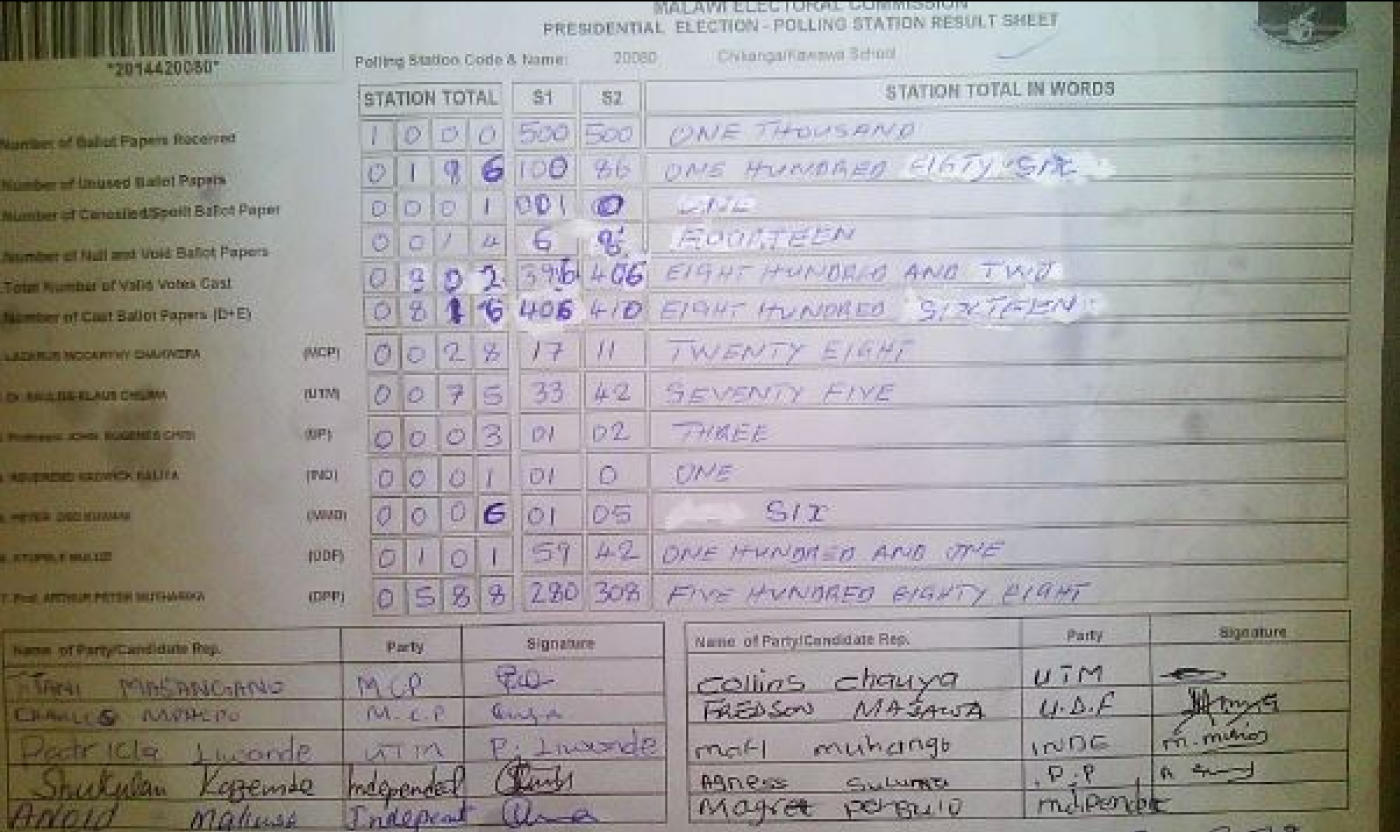 MALAWI ELECTORAL COMMISSION
PRESIDENTIAL ELECTION - POLLING STATION RESULT SHEET
*2014420080*
Polling Station Code & Name: 20080 Chikanga/Kawawa School
STATION TOTAL S1 S2 STATION TOTAL IN WORDS
Number of Ballot Papers Received 1 0 0 0 500 500 ONE THOUSAND
Number of Unused Ballot Papers 0 1 8 6 100 86 ONE HUNDRED EIGTY SIX
Number of Cancelled/Spoilt Ballot Paper 0 0 0 1 001 0 ONE
Number of Null and Void Ballot Papers 0 0 1 4 6 8 FOURTEEN
Total Number of Valid Votes Cast 0 8 0 2 396 406 EIGHT HUNDRED AND TWO
Number of Cast Ballot Papers (D+E) 0 8 1 6 406 410 EIGHT HUNDRED SIXTEEN
LAZARUS MCCARTHY CHAKWERA (MCP) 0 0 2 8 17 11 TWENTY EIGHT
Dr. SAULOS KLAUS CHILIMA (UTM) 0 0 7 5 33 42 SEVENTY FIVE
Professor JOHN EUGENES CHISI (UP) 0 0 0 3 01 02 THREE
REVEREND HADWICK KALIYA (IND) 0 0 0 1 01 0 ONE
PETER DSD KUWANI (MMD) 0 0 0 6 01 05 SIX
ATUPELE MULUZI (UDF) 0 1 0 1 59 42 ONE HUNDRED AND ONE
7. Prof. ARTHUR PETER MUTHARIKA (DPP) 0 5 8 8 280 308 FIVE HUNDRED EIGHTY EIGHT
Name of Party/Candidate Rep. Party Signature Name of Party/Candidate Rep. Party Signature
MCP Collins Chauya UTM
M.C.P FREDSON MASAWA U.D.F
Patricia Liwonde UTM P. Liwonde mafi muhango INDE
Shukulan Kazembe Independet Agness
Independent Magret